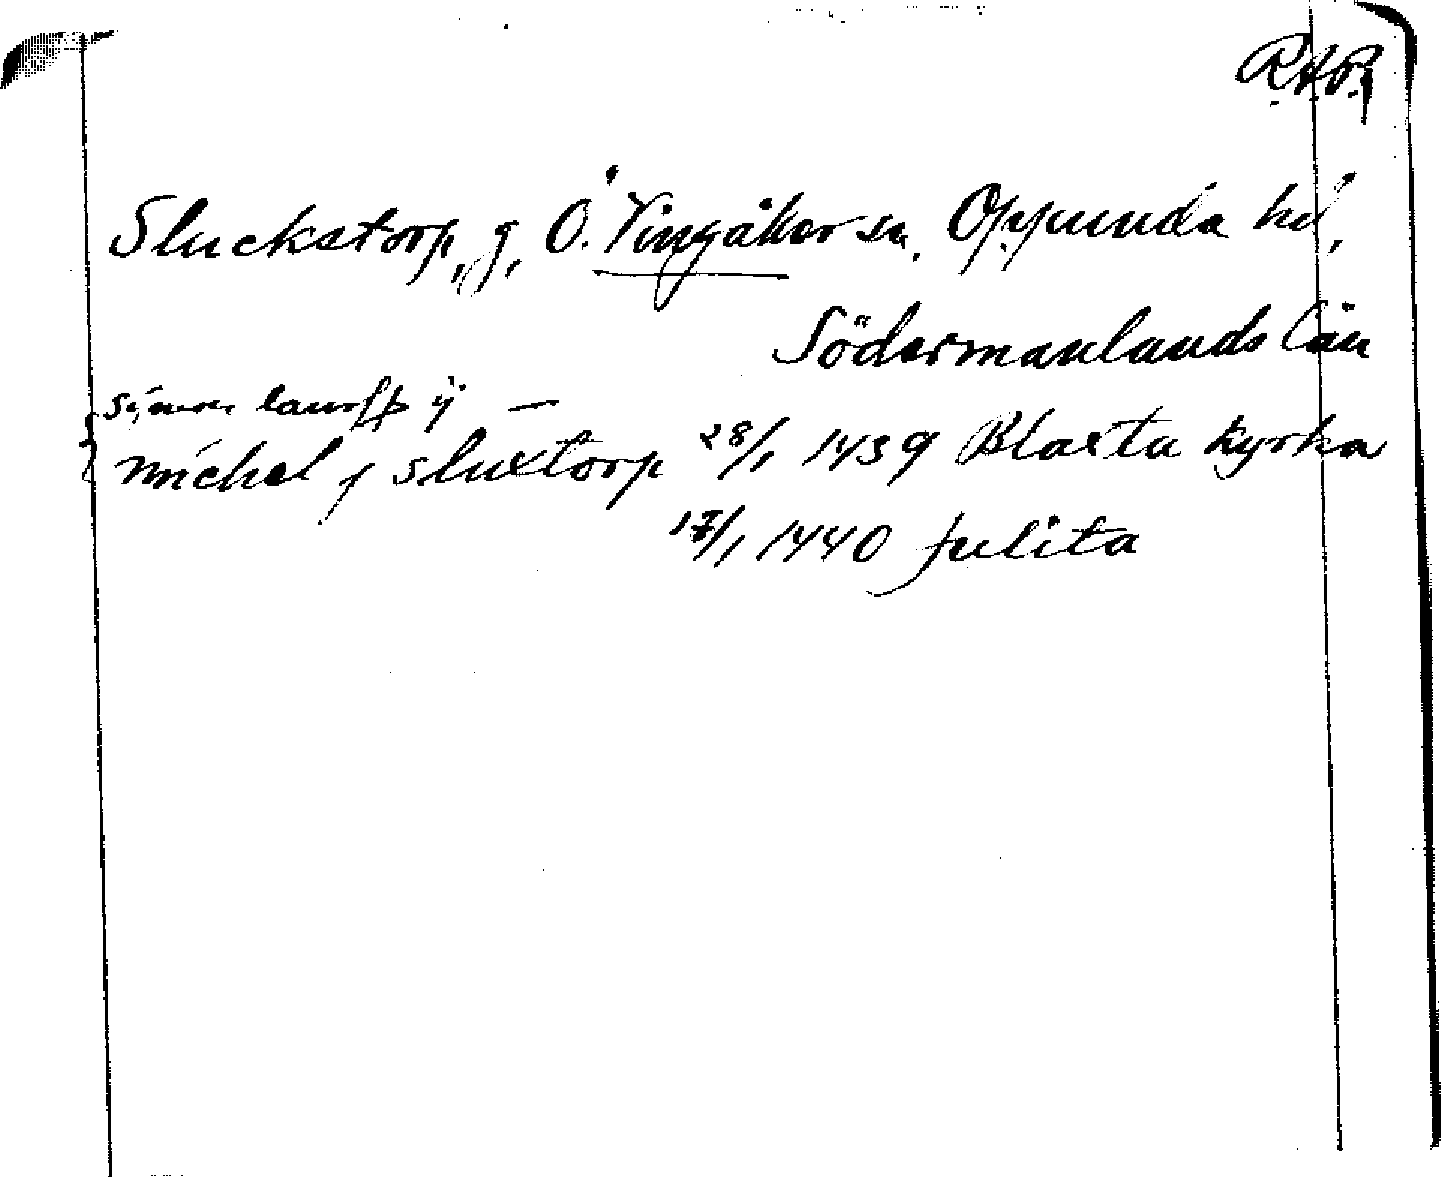 R.A.P.
Sluckstorp, g, Ö. Vingåker sn, Oppunda hd,
Södermanlands län
symon laurss ÿ —
michel j sluxtorp 28/1 1439 Blaxta kyrka
17/1 1440 Julita